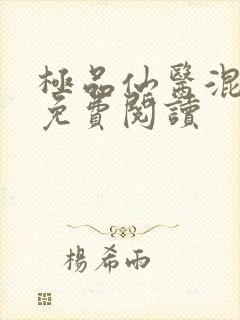 極品仙醫混
免費閱讀
楊希雨